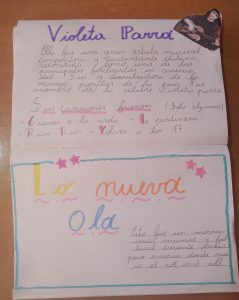 Violeta Parra
Ella fue una gran artista musical,
compositora y cantautante chilena,
reconocida como una de las
principales folkloristas en america
del Sur y divulgadora de la
musica popular de su pais. Fue
miembro de la celebre Violeta parra.
Sus canciones fueron (Solo algunas)
- Gracias a la vida - La jardinera
- Run - Run - Volver a los 17
La nueva
Ola
Esto fue un movim
iento musical y fue